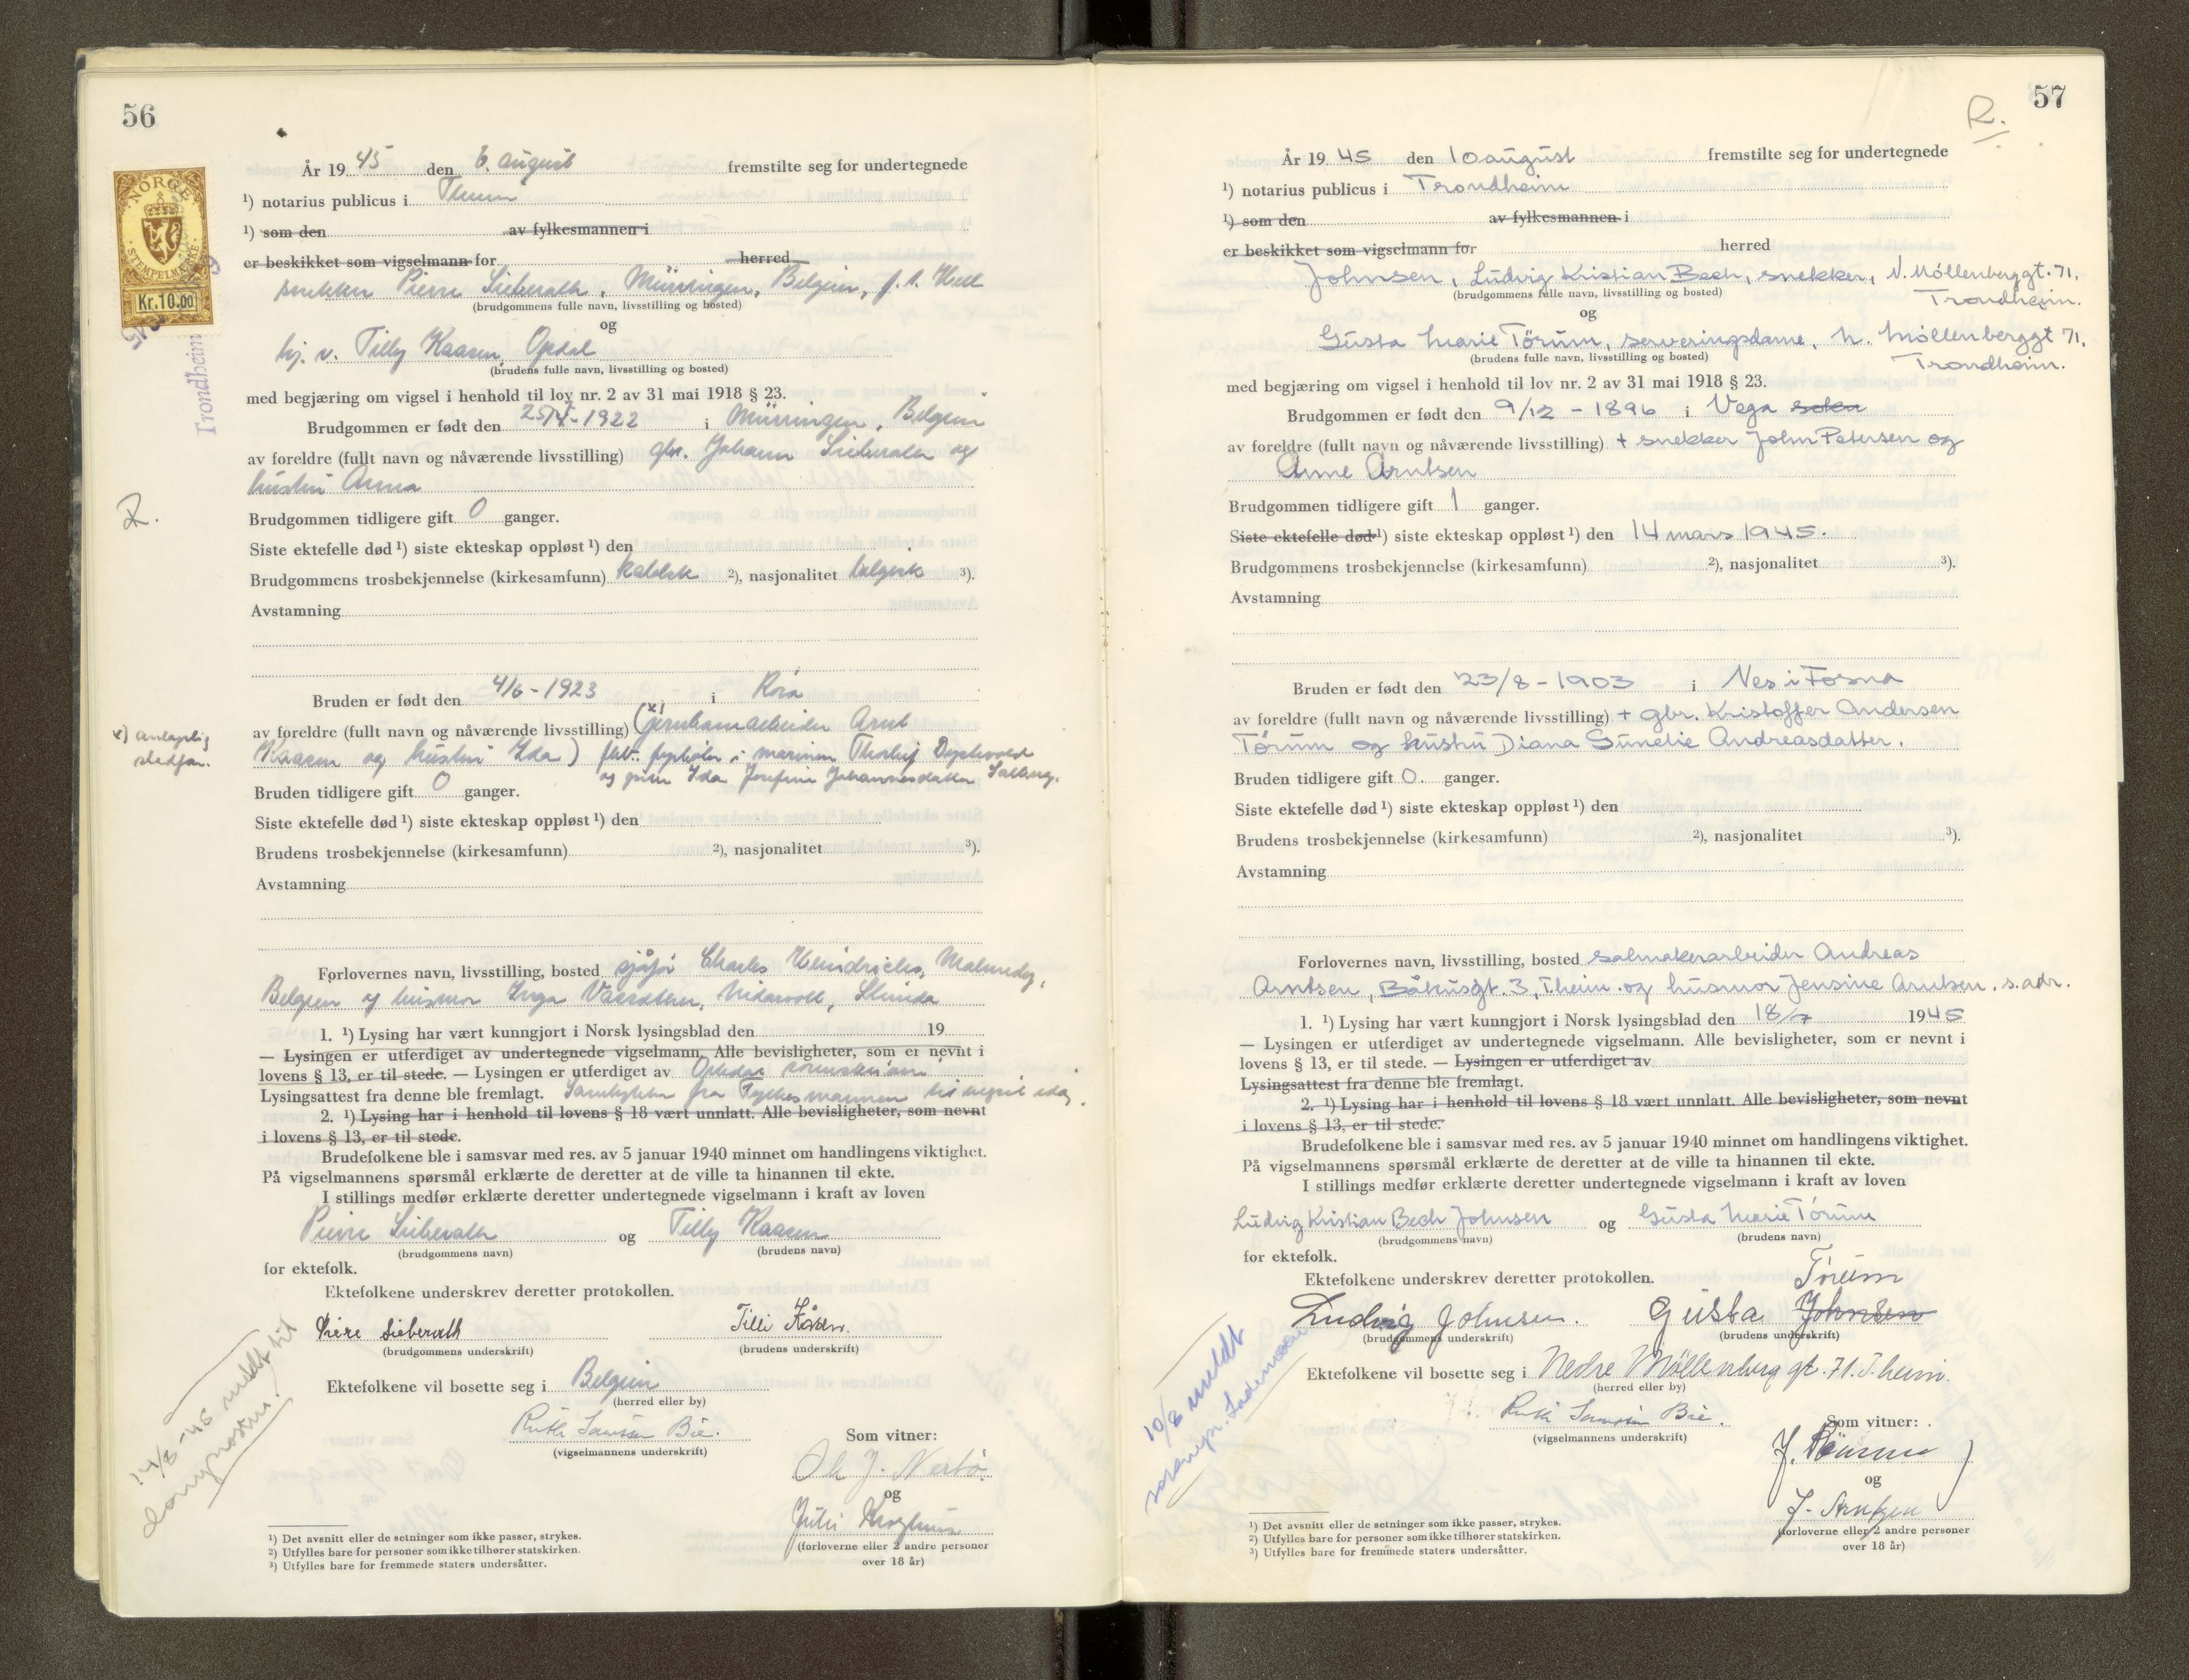 56
NORGE
STEMPELMERKE
Kr.10.00
Trondheim
År 1945 den 6. august fremstilte seg for undertegnede
¹) notarius publicus i Thrm
¹) som den av fylkesmannen i
er beskikket som vigselmann for herred
snekker Pierre Sieberath, Mürringen, Belgien, f. t. Hell
(brudgommens fulle navn, livsstilling og bosted)
og
hj. v. Tilly Kaasen, Opdal
(brudens fulle navn, livsstilling og bosted)
med begjæring om vigsel i henhold til lov nr. 2 av 31 mai 1918 § 23.
Brudgommen er født den 1922 i Mürringen, Belgien
av foreldre (fullt navn og nåværende livsstilling) gbr. Johann Sieberath og
hustru Anna
R.
Brudgommen tidligere gift 0 ganger.
Siste ektefelle død ¹) siste ekteskap oppløst ¹) den
Brudgommens trosbekjennelse (kirkesamfunn) katolsk ²), nasjonalitet belgisk ³).
Avstamning
Bruden er født den 4/6 - 1923 i
av foreldre (fullt navn og nåværende livsstilling) (x) jernbanearbeider Arnt
x) antagelig
stedfar.
Kaasen og hustru Ida) i marinen
og Ida Josefine Johannesdatter
Bruden tidligere gift 0 ganger.
Siste ektefelle død ¹) siste ekteskap oppløst ¹) den
Brudens trosbekjennelse (kirkesamfunn) ²), nasjonalitet ³).
Avstamning
Forlovernes navn, livsstilling, bosted sjåfør Charles Heindrichs, Malmedy,
Belgien og husmor Inga Nidarvoll, Strinda
1. ¹) Lysing har vært kunngjort i Norsk lysingsblad den 19
— Lysingen er utferdiget av undertegnede vigselmann. Alle bevisligheter, som er nevnt i
lovens § 13, er til stede. — Lysingen er utferdiget av Opdal
Lysingsattest fra denne ble fremlagt. Samtykke fra Fylkesmannen til vigsel idag.
2. ¹) Lysing har i henhold til lovens § 18 vært unnlatt. Alle bevisligheter, som nevnt
i lovens § 13, er til stede.
Brudefolkene ble i samsvar med res. av 5 januar 1940 minnet om handlingens viktighet.
På vigselmannens spørsmål erklærte de deretter at de ville ta hinannen til ekte.
I stillings medfør erklærte deretter undertegnede vigselmann i kraft av loven
Pierre Sieberath og Tilly Kaasen
(brudgommens navn) (brudens navn)
for ektefolk.
Ektefolkene underskrev deretter protokollen.
Piere Sieberath Tilli Kåsen.
(brudgommens underskrift) (brudens underskrift)
Ektefolkene vil bosette seg i Belgien
(herred eller by)
Ruth Bie.
(vigselmannens underskrift)
Som vitner:
og
(forloverne eller 2 andre personer
over 18 år)
14/8-45 meldt til
¹) Det avsnitt eller de setninger som ikke passer, strykes.
²) Utfylles bare for personer som ikke tilhører statskirken.
³) Utfylles bare for fremmede staters undersåtter.
57
R.
År 1945 den 10 august fremstilte seg for undertegnede
¹) notarius publicus i Trondheim
¹) som den av fylkesmannen i
er beskikket som vigselmann for herred
Johnsen, Ludvig Kristian Bech, snekker, N. Møllenberggt. 71,
(brudgommens fulle navn, livsstilling og bosted) Trondheim.
og
Gusta Marie Tørum, serveringsdame, N. Møllenberggt 71,
(brudens fulle navn, livsstilling og bosted) Trondheim.
med begjæring om vigsel i henhold til lov nr. 2 av 31 mai 1918 § 23.
Brudgommen er født den 9/12 - 1896 i Vega sokn
av foreldre (fullt navn og nåværende livsstilling) + snekker John Petersen og
Anne Arntsen
Brudgommen tidligere gift 1 ganger.
Siste ektefelle død ¹) siste ekteskap oppløst ¹) den 14 mars 1945.
Brudgommens trosbekjennelse (kirkesamfunn) ²), nasjonalitet ³).
Avstamning
Bruden er født den 23/8 - 1903 i Nes i Fosna
av foreldre (fullt navn og nåværende livsstilling) + gbr. Kristoffer Andersen
Tørum og hustru Diana Gunelie Andreasdatter.
Bruden tidligere gift 0. ganger.
Siste ektefelle død ¹) siste ekteskap oppløst ¹) den
Brudens trosbekjennelse (kirkesamfunn) ²), nasjonalitet ³).
Avstamning
Forlovernes navn, livsstilling, bosted salmakerarbeider Andreas
Arntsen, Båkusgt. 3, T.heim. og husmor Jensine Arntsen. s. adr.
1. ¹) Lysing har vært kunngjort i Norsk lysingsblad den 18/7 1945
— Lysingen er utferdiget av undertegnede vigselmann. Alle bevisligheter, som er nevnt i
lovens § 13, er til stede. — Lysingen er utferdiget av
Lysingsattest fra denne ble fremlagt.
2. ¹) Lysing har i henhold til lovens § 18 vært unnlatt. Alle bevisligheter, som nevnt
i lovens § 13, er til stede.
Brudefolkene ble i samsvar med res. av 5 januar 1940 minnet om handlingens viktighet.
På vigselmannens spørsmål erklærte de deretter at de ville ta hinannen til ekte.
I stillings medfør erklærte deretter undertegnede vigselmann i kraft av loven
Ludvig Kristian Bech Johnsen og Gusta Marie Tórum
(brudgommens navn) (brudens navn)
for ektefolk.
Ektefolkene underskrev deretter protokollen. Tórum
Ludvig Johnsen. Gusta Johnsen
(brudgommens underskrift) (brudens underskrift)
Ektefolkene vil bosette seg i Nedre Møllenberg gt. 71. T.heim.
(herred eller by)
Ruth Bie.
(vigselmannens underskrift)
Som vitner:
og
J. Arntzen
(forloverne eller 2 andre personer
over 18 år)
10/8 meldt
soknepr. Lademoen
¹) Det avsnitt eller de setninger som ikke passer, strykes.
²) Utfylles bare for personer som ikke tilhører statskirken.
³) Utfylles bare for fremmede staters undersåtter.